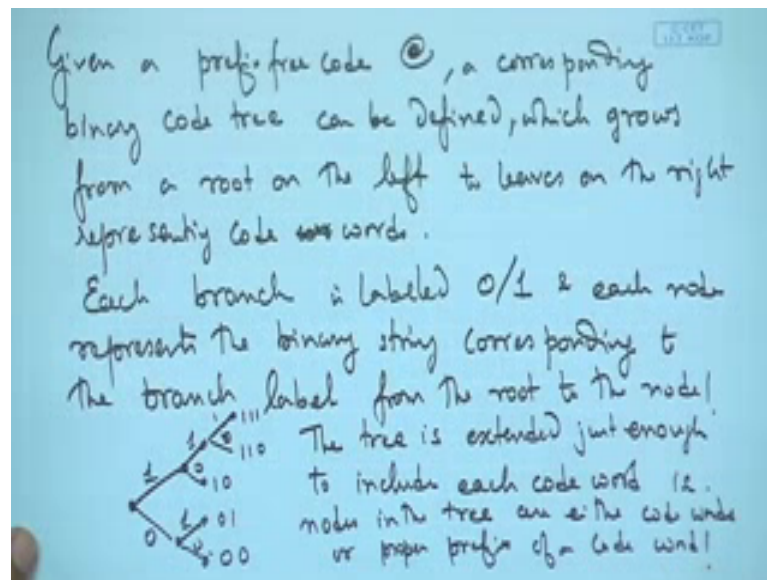 Given a prefix free code C, a corresponding
binary code tree can be defined, which grows
from a root on the left to leaves on the right
representing code words.
Each branch is labelled 0/1 & each node
represents the binary string corresponding to
the branch label from the root to the node!
1 111
1 0 110 The tree is extended just enough
1 0 10 to include each code word i.e.
1 01 nodes in the tree are either code words
0 0 00 or proper prefix of a code word!